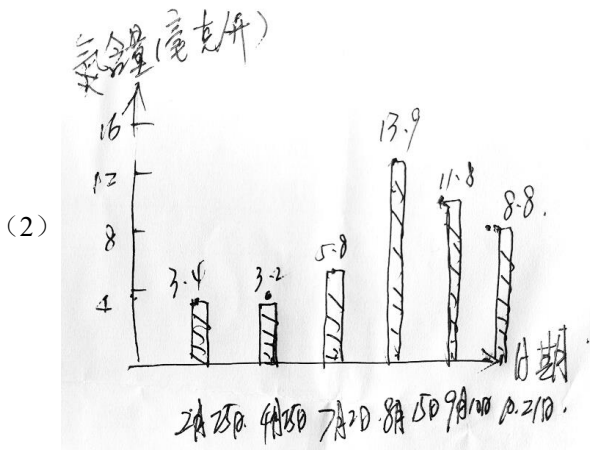 氮含量(毫克/升)
16
12
8
4
(2)
3.4
3.2
5.8
13.9
11.8
8.8.
日期
2月25日. 4月25日 7月2日. 8月15日 9月10日 10.21日.